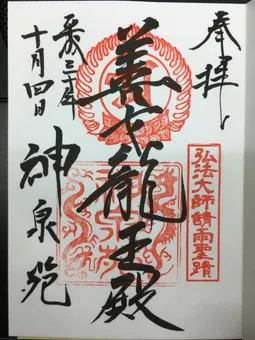 奉拝
弘法大師請雨聖蹟
善女龍王殿
平成三十年
十月四日
神泉苑